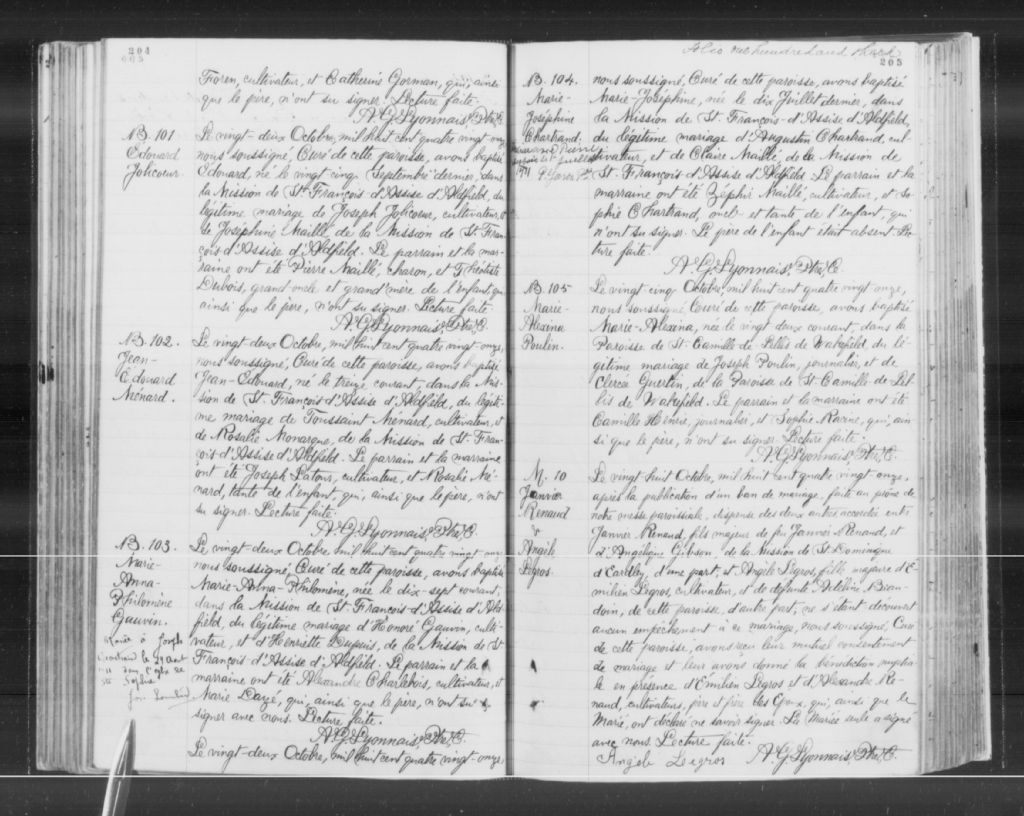 204
Fioren, cultivateur, et Catherine Gorman, qui, ainsi
que le père, n'ont su signer. Lecture faite.
A. G. Lyonnais, Ptre, C.
B. 101
Edouard
Jolicoeur.
Le vingt deux Octobre, mil huit cent quatre vingt onze
nous soussigné, Curé de cette paroisse, avons baptisé
Edouard, né le vingt cinq Septembre dernier, dans
la Mission de St. François d'Assise d'Aldfield, du
légitime mariage de Joseph Jolicoeur, cultivateur, et
de Josephine Maillé de la Mission de St Fran-
çois d'Assise d'Aldfield. Le parrain et la mar-
raine ont été Pierre Maillé, charon, et Théotiste
Dubois, grand oncle et grand'mère de l'enfant, qui
ainsi que le père, n'ont su signer. Lecture faite.
A. G. Lyonnais, Ptre, C.
B. 102.
Jean-
Edouard
Ménard.
Le vingt deux Octobre, mil huit cent quatre vingt onze,
nous soussigné, Curé de cette paroisse, avons baptisé
Jean-Edouard, né le treize courant, dans la Mis-
sion de St. François d'Assise d'Aldfield, du légiti-
me mariage de Toussaint Ménard, cultivateur, et
de Rosalie Monarque, de la Mission de St. Fran-
çois d'Assise d'Aldfield. Le parrain et la marraine
ont été Joseph Latour, cultivateur, et Rosalie Mé-
nard, tante de l'enfant, qui, ainsi que le père, n'ont
su signer. Lecture faite.
A. G. Lyonnais, Ptre, C.
B. 103.
Marie-
Anna-
Philomène
Gauvin.
Mariée à Joseph
le 29 Août
Le vingt-deux Octobre, mil huit cent quatre vingt-onze
nous soussigné, Curé de cette paroisse, avons baptisé
Marie-Anna-Philomène, née le dix-sept courant,
dans la Mission de St. François d'Assise d'Ald-
field, du légitime mariage d'Honoré Gauvin, culti-
vateur, et d'Henriette Dupuis, de la Mission de St
François d'Assise d'Aldfield. Le parrain et la
marraine ont été Alexandre Charlebois, cultivateur, et
Marie Dazé, qui, ainsi que le père, n'ont su
signer avec nous. Lecture faite.
A. G. Lyonnais, Ptre, C.
Le vingt-deux Octobre, mil huit cent quatre vingt-onze
Folio one hundred and third
205
B. 104.
Marie-
Joséphine
Chartrand.
nous soussigné, Curé de cette paroisse, avons baptisé
Marie-Joséphine, née le dix Juillet dernier, dans
la Mission de St. François d'Assise d'Aldfield,
du légitime mariage d'Augustin Chartrand, cul-
tivateur, et de Claire Maillé, de la Mission de
St. François d'Assise d'Aldfield. Le parrain et la
marraine ont été Zéphir Maillé, cultivateur, et So-
phie Chartrand, oncle et tante de l'enfant, qui
n'ont su signer. Le père de l'enfant était absent. Lec-
ture faite.
A. G. Lyonnais, Ptre, C.
B. 105
Marie-
Alexina
Poulin.
Le vingt cinq Octobre, mil huit cent quatre vingt onze,
nous soussigné, Curé de cette paroisse, avons baptisé
Marie-Alexina, née le vingt deux courant, dans la
Paroisse de St. Camille de Lellis de Wakefield du lé-
gitime mariage de Joseph Poulin, journalier, et de
Clerca Guertin, de la Paroisse de St Camille de Lel-
lis de Wakefield. Le parrain et la marraine ont été
Camille Henrie, journalier, et Sophie Racine, qui, ain-
si que le père, n'ont su signer. Lecture faite.
A. G. Lyonnais, Ptre, C.
M. 10
Janvier
Renaud
&
Angèle
Legros.
Le vingt huit Octobre, mil huit cent quatre vingt onze,
après la publication d'un ban de mariage, faite au prône de
notre messe paroissiale, dispense des deux autres accordée entre
Janvier Renaud, fils majeur de feu Janvier Renaud, et
d'Angélique Gibson, de la Mission de St. Dominique
d'Eardley, d'une part, et Angèle Legros, fille majeure d'E-
milien Legros, cultivateur, et de défunte Adeline Beau-
doin, de cette paroisse, d'autre part, ne s'étant découvert
aucun empêchement à ce mariage, nous soussigné, Curé
de cette paroisse, avons reçu leur mutuel consentement
de mariage et leur avons donné la bénédiction nuptia-
le en présence d'Emilien Legros et d'Alexandre Re-
naud, cultivateurs, père et frère des Epoux, qui, ainsi que le
Marié, ont déclaré ne savoir signer. La Mariée seule a signé
avec nous. Lecture faite.
Angèle Legros A. G. Lyonnais, Ptre, C.